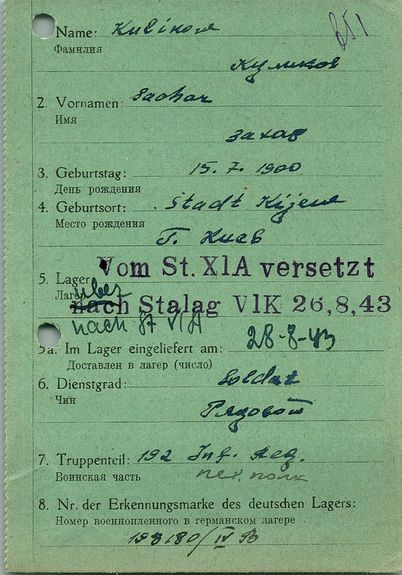 Name: Kulikow
Фамилия
Куликов
2. Vornamen: Sachar
Имя
Захар
3. Geburtstag: 15. 7. 1900
День рождения
4. Geburtsort: Stadt Kijew
Место рождения
Г. Киев
Vom St. XIA versetzt
5. Lager
Лагерь
über
nach Stalag VIK 26,8,43
nach St VIA
5a. Im Lager eingeliefert am: 28-8-43
Доставлен в лагер (число)
6. Dienstgrad: Soldat
Чин
Рядовой
7. Truppenteil: 192 Inf. Reg.
Воинская часть пех. полк
8. Nr. der Erkennungsmarke des deutschen Lagers:
Номер военнопленного в германском лагере
193180/IV B